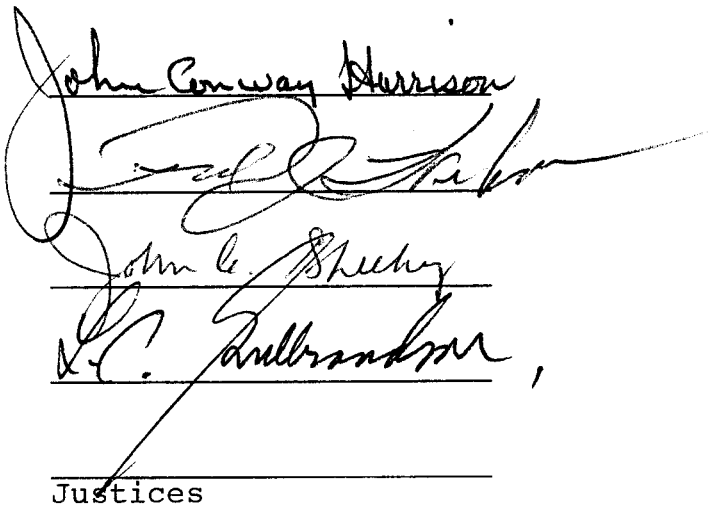 John Conway Harrison
John C. Sheehy
L.C. Gulbrandson,
Justices